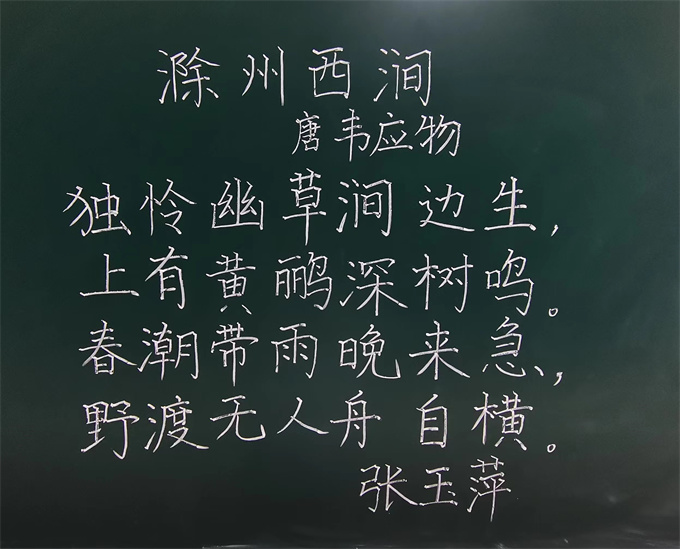 滁州西涧
唐韦应物
独怜幽草涧边生,
上有黄鹂深树鸣。
春潮带雨晚来急,
野渡无人舟自横。
张玉萍